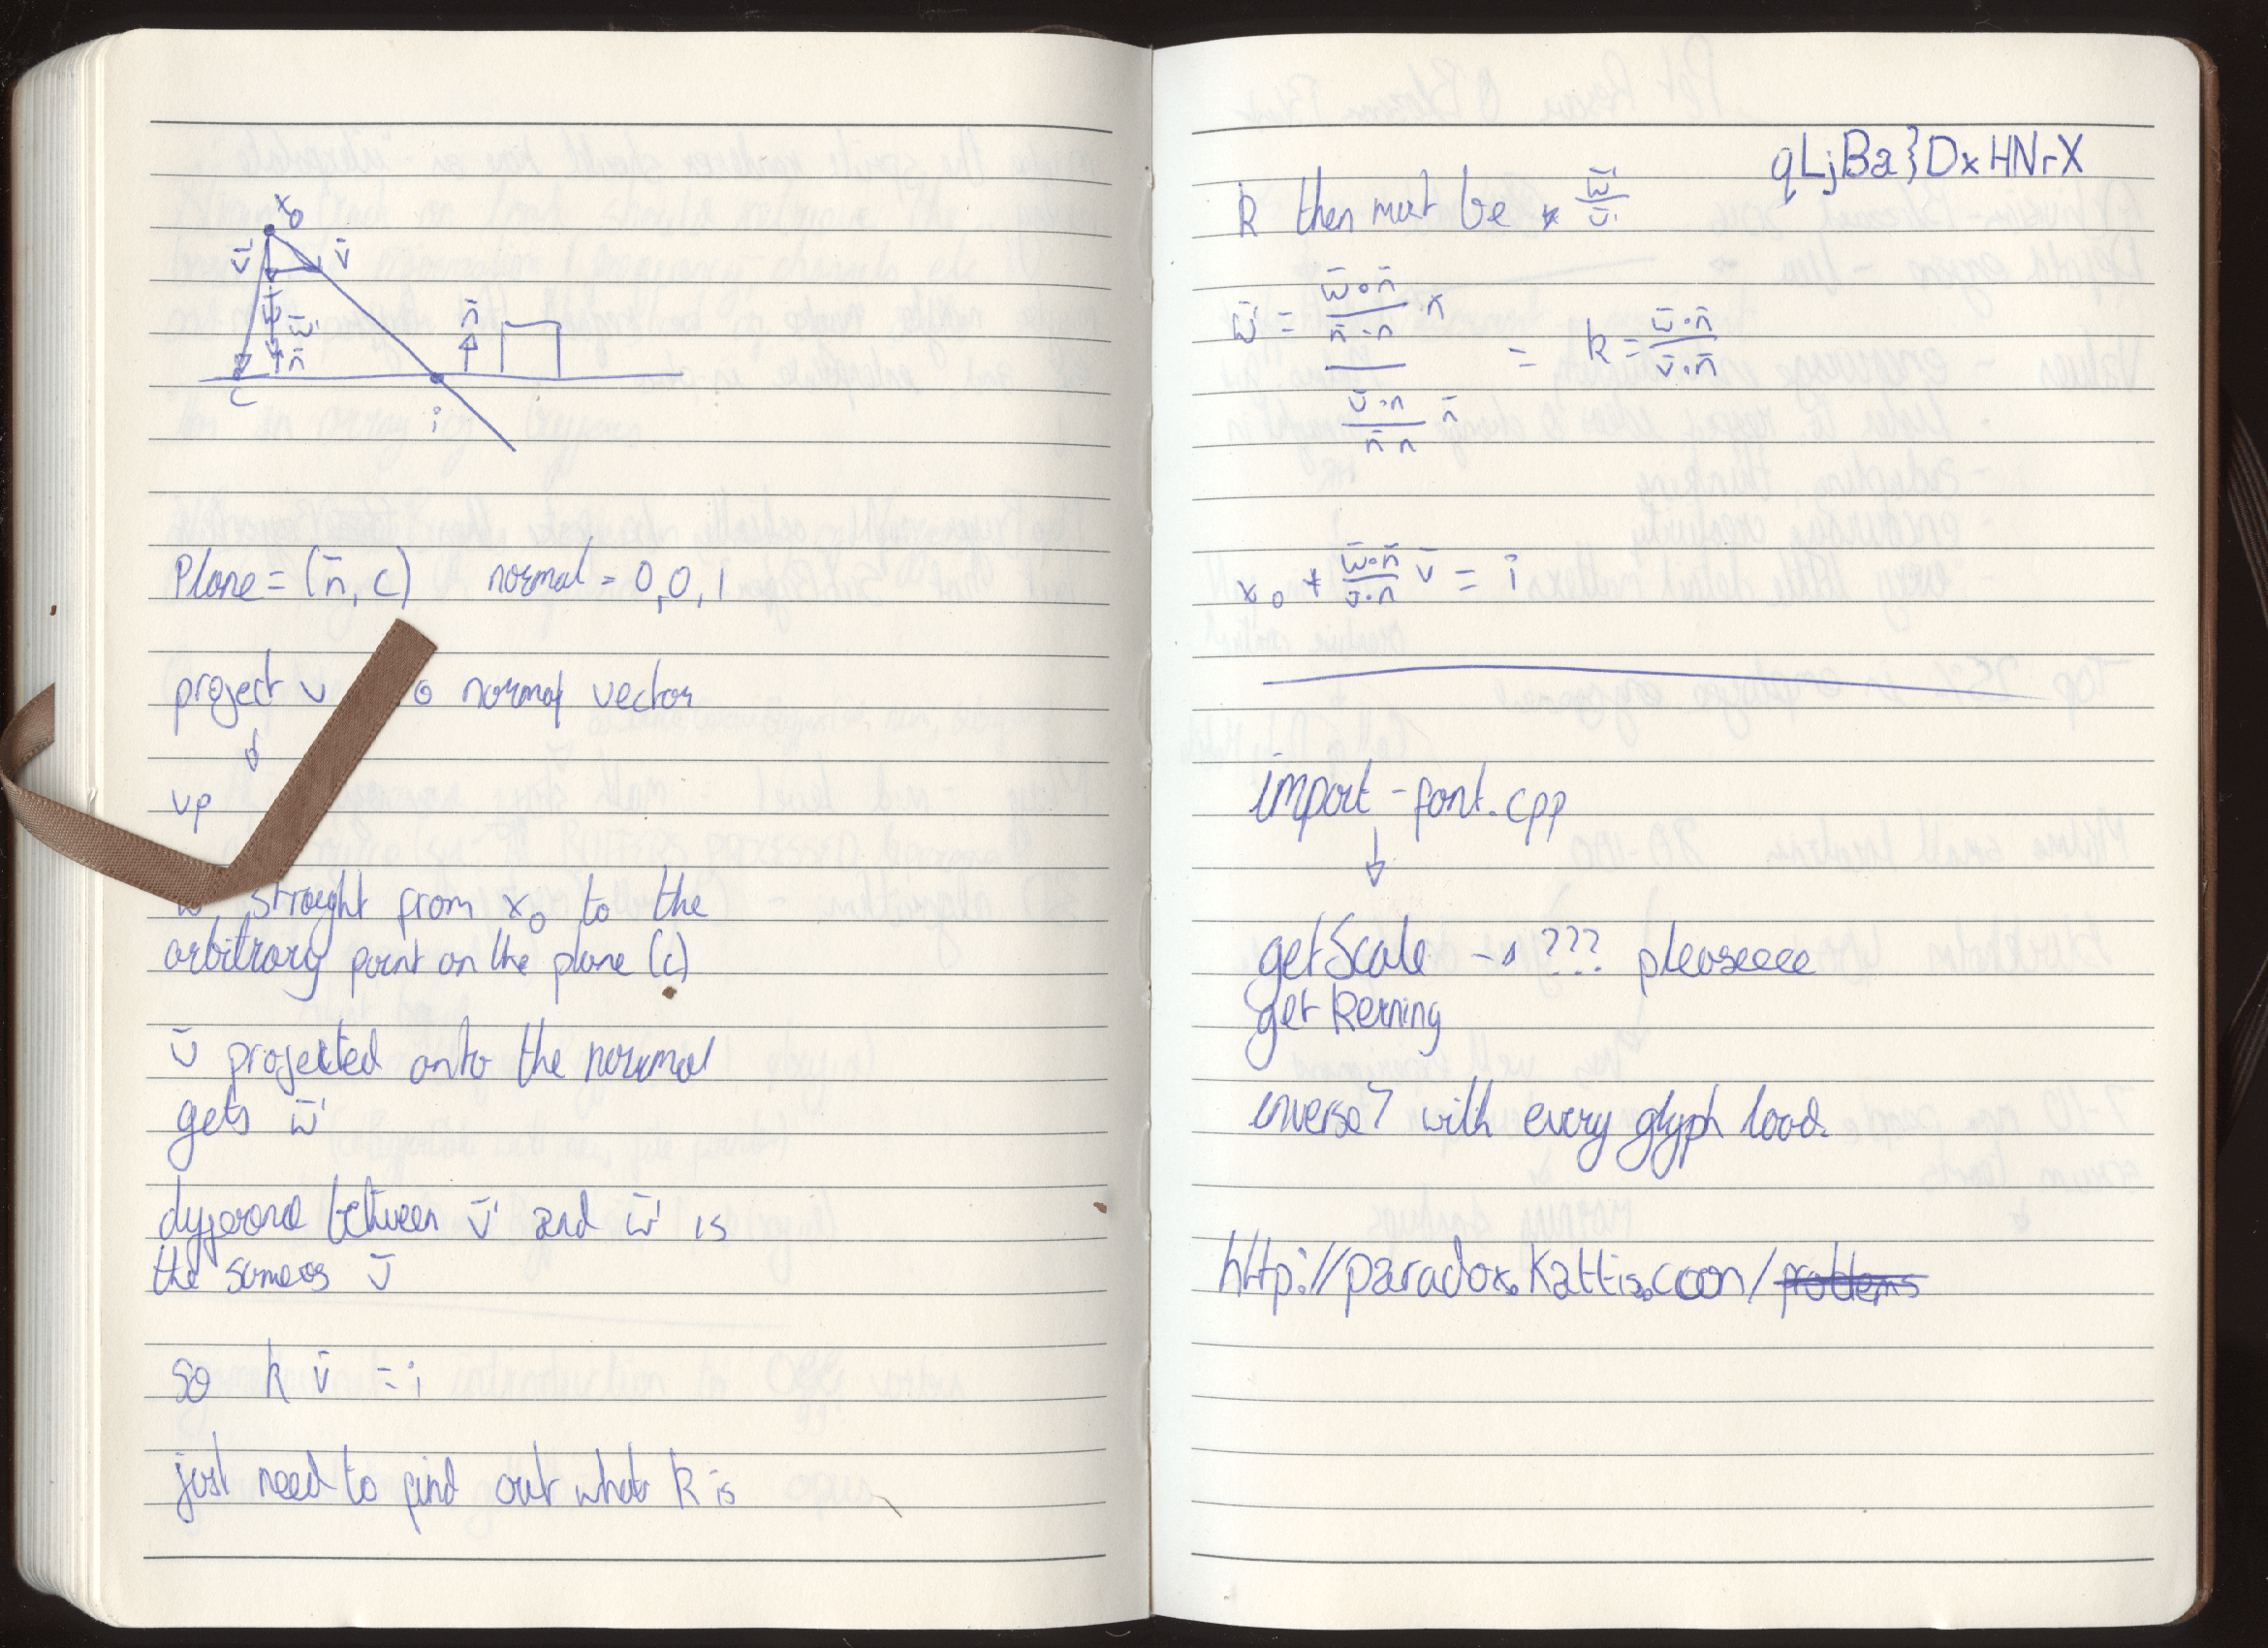 x₀
v̄' v̄
w̄
w̄' n̄
n̄
c
i
Plane = (n̄, c) normal = 0,0,1
project v o normal vector
↓
vp
w, straight from x₀ to the
arbitrary point on the plane (c)
v̄ projected onto the normal
gets w̄'
difference between v̄' and w̄' is
the same as v̄
so k v̄ = i
just need to find out what k is
qLjBa}DxHNrX
k then must be w̄'/v̄'
w̄' = w̄∘n̄ / n̄·n · n
= k = w̄·n̄ / v̄·n̄
v̄·n / n̄ n n̄
x₀ + w̄∘n̄ / v̄·n v̄ = i
import-font.cpp
↓
getScale → ??? pleaseeee
get kerning
inverse? with every glyph load.
http://paradox.kattis.com/problems